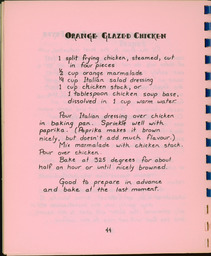 ORANGE GLAZED CHICKEN
1 split frying chicken, steamed, cut
in four pieces
½ cup orange marmalade
¼ cup Italian salad dressing
1 cup chicken stock, or
1 tablespoon chicken soup base,
dissolved in 1 cup warm water
Pour Italian dressing over chicken
in baking pan. Sprinkle well with
paprika. (Paprika makes it brown
nicely, but doesn't add much flavour.)
Mix marmalade with chicken stock.
Pour over chicken.
Bake at 325 degrees for about
half an hour or until nicely browned.
Good to prepare in advance
and bake at the last moment.
44